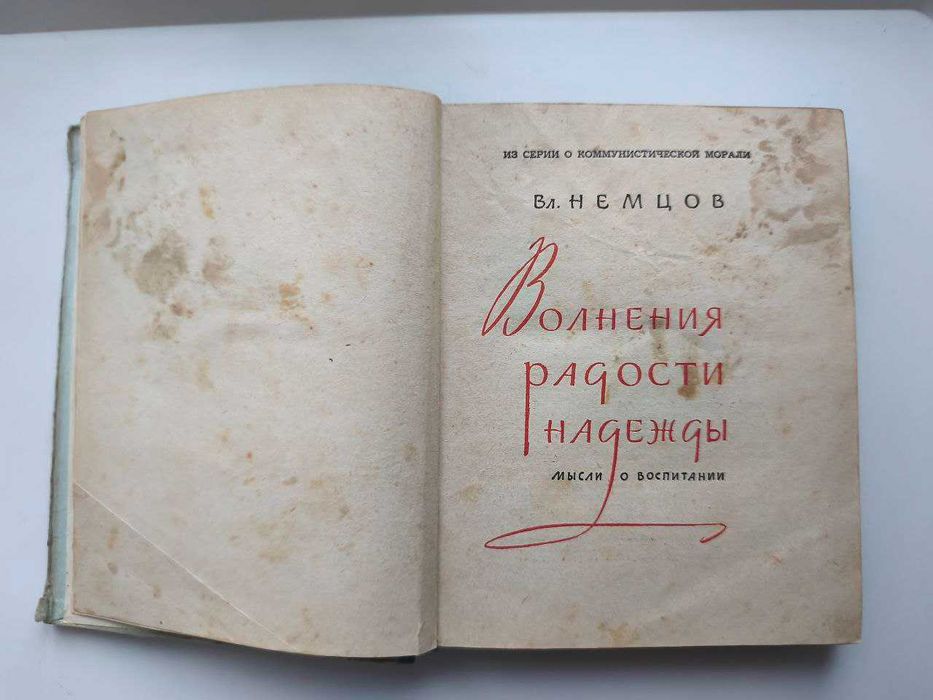 ИЗ СЕРИИ О КОММУНИСТИЧЕСКОЙ МОРАЛИ
Вл. НЕМЦОВ
Волнения
радости
надежды
МЫСЛИ О ВОСПИТАНИИ